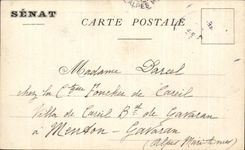 SÉNAT
CARTE POSTALE
Madame Darcel
chez la Ctesse Foucher de Careil
Villa de Careil Bd de Garavan
à Menton-Garavan
(Alpes Maritimes)